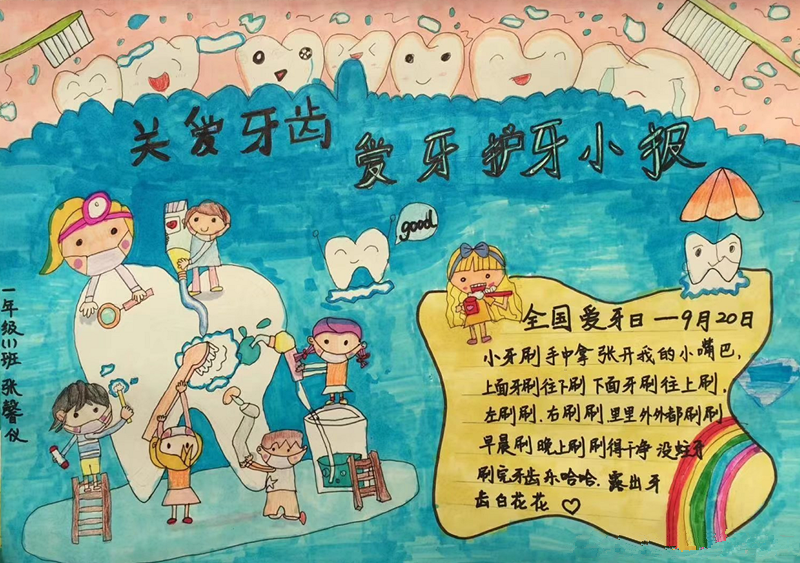 关爱牙齿
爱牙护牙小报
good
一年级(1)班 张馨仪
全国爱牙日—9月20日
小牙刷手中拿张开我的小嘴巴,
上面牙刷往下刷下面牙刷往上刷.
左刷刷.右刷刷里里外外都刷刷
早晨刷晚上刷刷得干净没蛀牙
刷完牙齿乐哈哈.露出牙
齿白花花